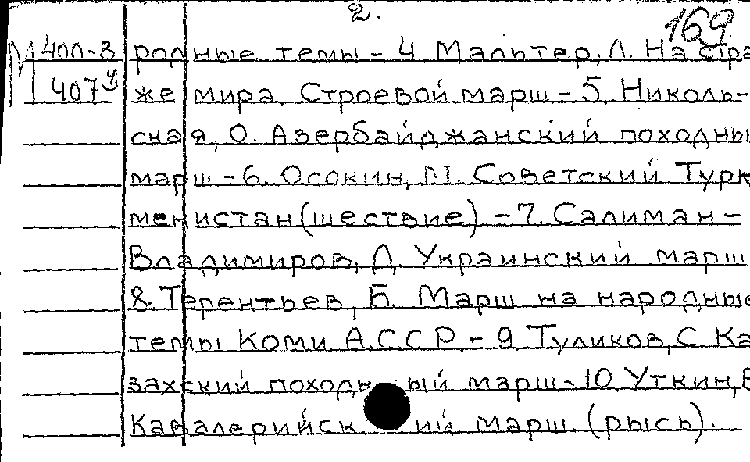 2.
169
М 40л-3 родные темы - 4. Мальтер, Л. На стра
407 у же мира. Строевой марш - 5. Николь-
ская, О. Азербайджанский походный
марш - 6. Осокин, М. Советский Турк
менистан (шествие) - 7. Салиман-
Владимиров, Д. Украинский марш
8. Терентьев, Б. Марш на народные
темы Коми А.ССР - 9 Туликов, С. Ка
захский походный марш - 10 Уткин, В
Кавалерийский марш (рысь).